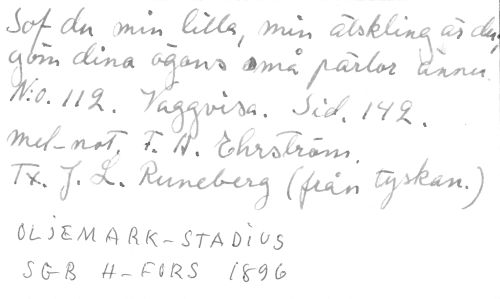 Sof du min lilla, min älskling är du,
göm dina ögons små pärlor ännu.
N:o. 112. Vaggvisa. Sid. 142.
mel-not. F. A. Ehrström.
Tx. J. L. Runeberg (från tyskan.)
OLJEMARK-STADIUS
SGB H-FORS 1896